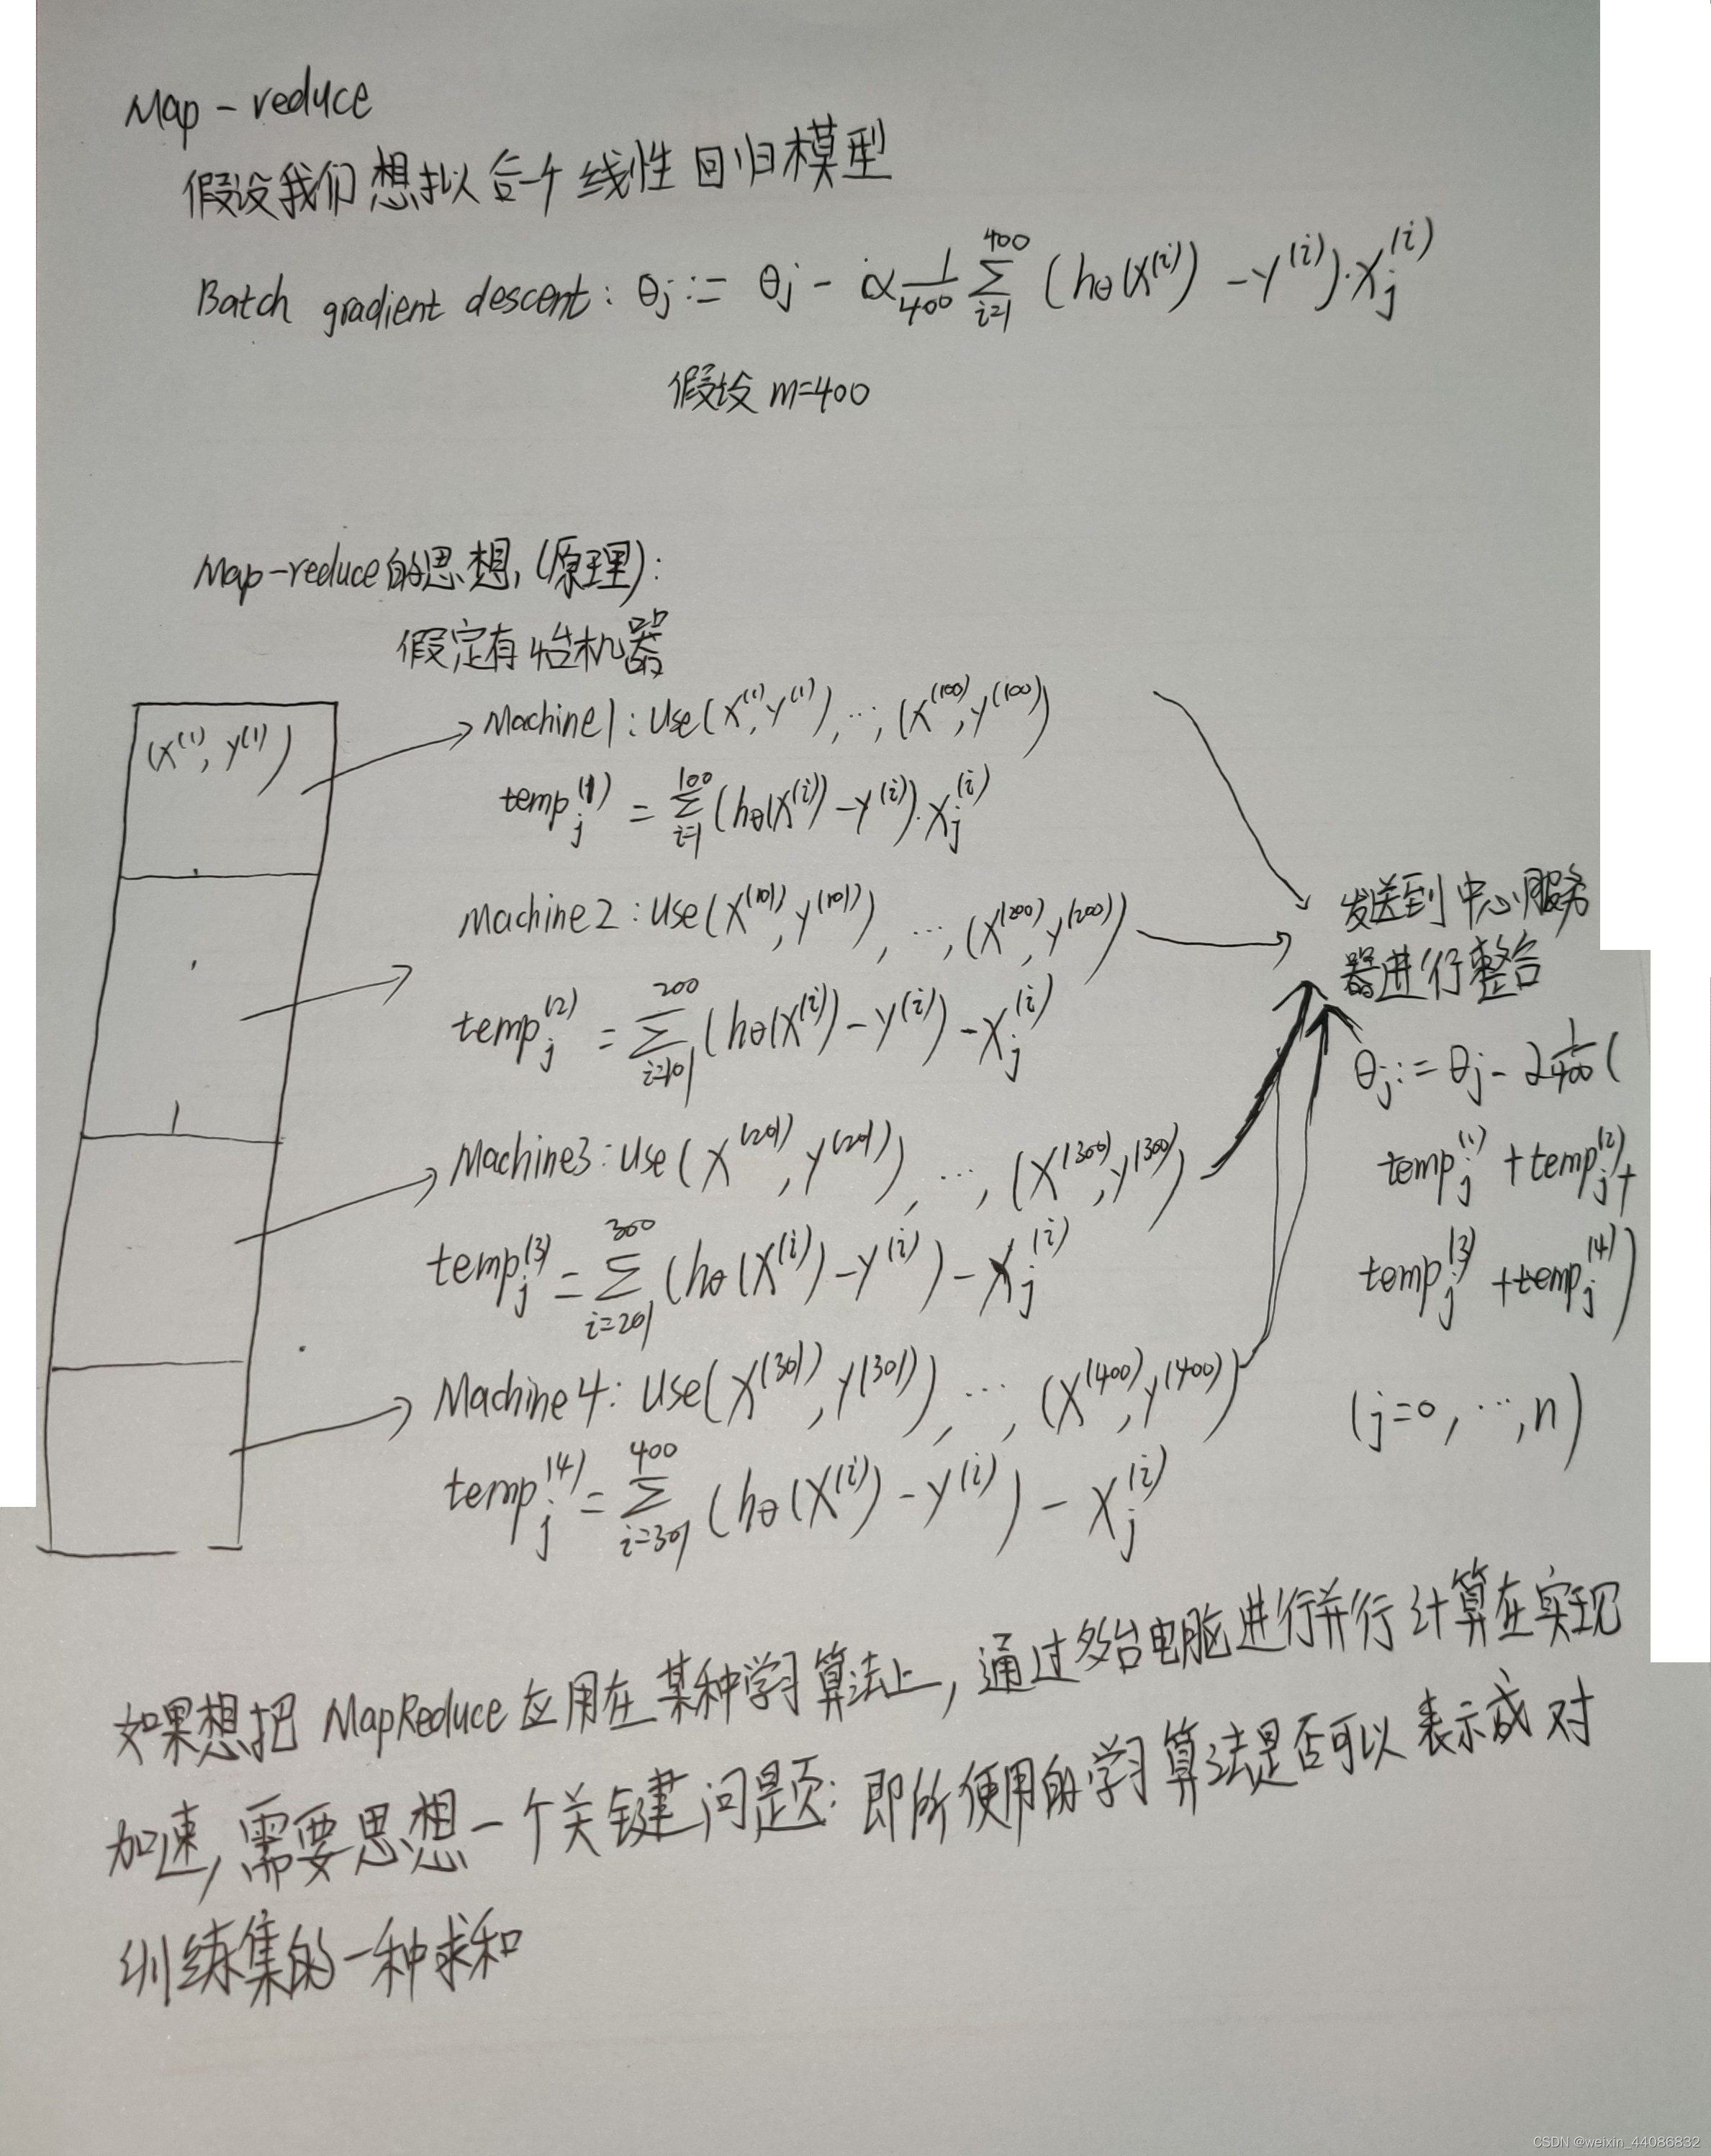 Map-reduce
假设我们想拟合一个线性回归模型
Batch gradient descent: θj := θj - α 1/400 ∑_{i=1}^{400} (hθ(X^(i)) - y^(i))·Xj^(i)
假设 m=400
Map-reduce的思想,(原理):
假定有4台机器
(X^(1), y^(1))
Machine1: Use(X^(1), y^(1)), ..., (X^(100), y^(100))
temp_j^(1) = ∑_{i=1}^{100} (hθ(X^(i)) - y^(i))·Xj^(i)
Machine2: Use(X^(101), y^(101)), ..., (X^(200), y^(200))
temp_j^(2) = ∑_{i=101}^{200} (hθ(X^(i)) - y^(i)) - Xj^(i)
Machine3: Use(X^(201), y^(201)), ..., (X^(300), y^(300))
temp_j^(3) = ∑_{i=201}^{300} (hθ(X^(i)) - y^(i)) - Xj^(i)
Machine4: Use(X^(301), y^(301)), ..., (X^(400), y^(400))
temp_j^(4) = ∑_{i=301}^{400} (hθ(X^(i)) - y^(i)) - Xj^(i)
发送到中心服务
器进行整合
θj := θj - α 1/400 (
temp_j^(1) + temp_j^(2) +
temp_j^(3) + temp_j^(4))
(j=0, ..., n)
如果想把 MapReduce 应用在某种学习算法上, 通过多台电脑进行并行计算在实现
加速, 需要思想一个关键问题: 即所使用的学习算法是否可以表示成对
训练集的一种求和
CSDN @weixin_44086832